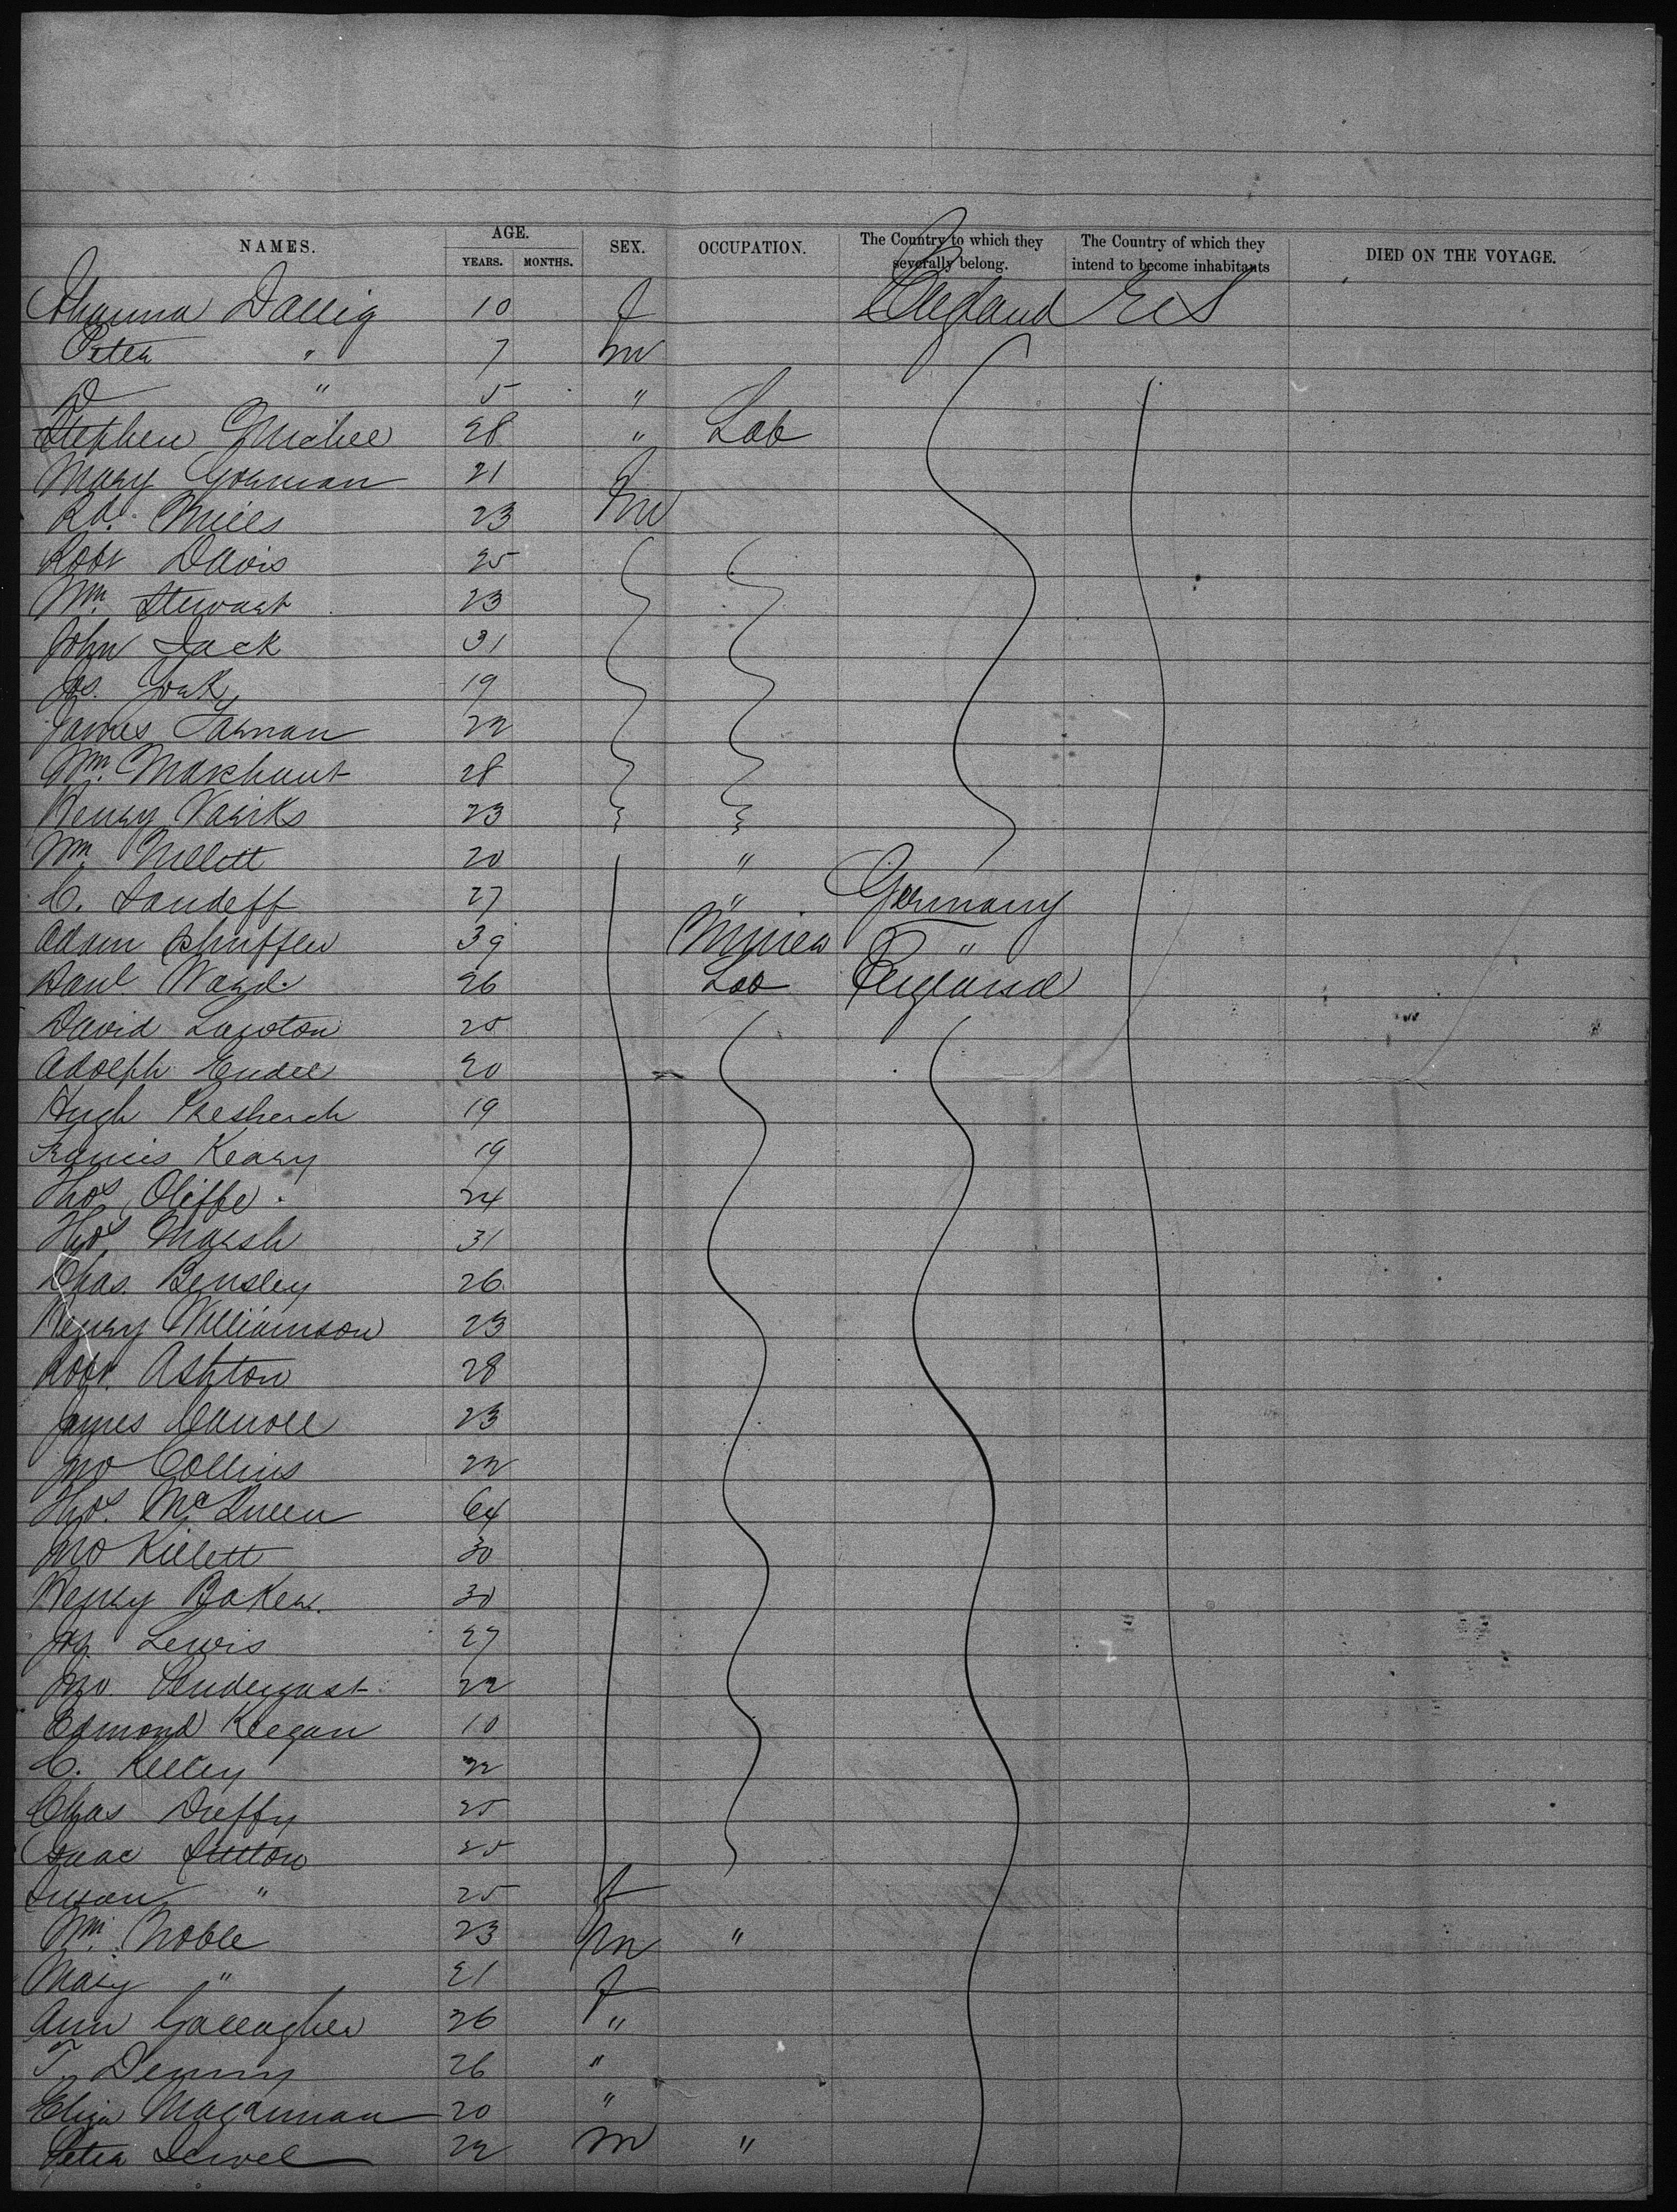 NAMES. AGE. YEARS. MONTHS. SEX. OCCUPATION. The Country to which they severally belong. The Country of which they intend to become inhabitants DIED ON THE VOYAGE.
Johanna Dallig 10 f England U S
Peter " 7 m
D " 5 "
Stephen 28 " Lab
Mary Gorman 21 f
Rd. Mills 23 m
Robt Davis 25
Wm. Stewart 23
John Jack 31
Jas. York 19
James Farnan 22
Wm. Marchant 28
Henry Variks 23
Wm. Millett 20 "
C. Landeff 27 " Germany
Adam 39 Miner "
Danl. Ward. 26 Lab England
David Lawton 25
Adolph Endel 20
Hugh 19
Francis Keary 19
Thos. Oliffe. 24
Thos. Marsh 31
Chas. Bensley 26
Henry Williamson 23
Robt. Ashton 28
James Carroll 23
Jno Collins 22
Thos. McQueen 64
Jno Killett 30
Henry Baker. 30
Jos. Lewis 27
Jno. Pendergast 22
Edmond Keegan 10
C. Kelley 22
Chas Duffy 25
Isaac Sutton 25
Susan " 25 f
Wm. Noble 23 m "
Mary " 21 f
Ann Gallagher 26 "
T. Denny 26 "
Eliza 20 "
Peter Dewel 22 m "